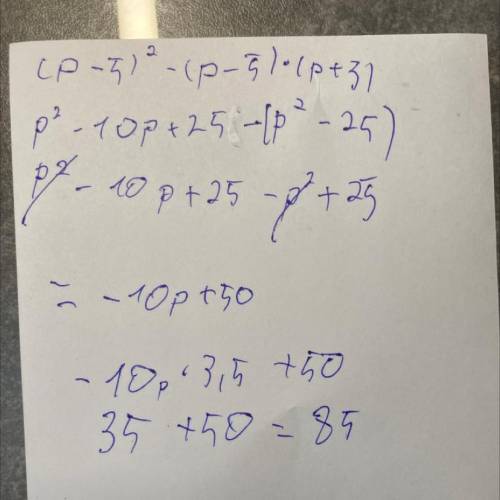 (p-5)² -(p-5)·(p+5)
p² - 10p+25 -(p² - 25)
p² - 10p+25 - p² + 25
= -10p+50
- 10p · 3,5 +50
35 +50 = 85